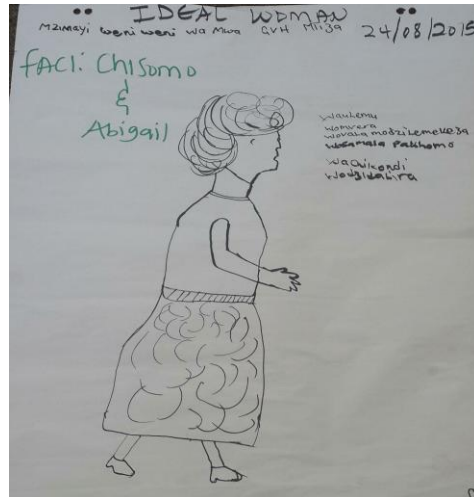 IDEAL WOMAN
Mzimayi weni weni wa Mwa GVH Mliza 24/08/2015
FACI: CHISOMO
&
Abigail
waulemu
womvera
wovala modzilemekeza
wosamala pakhomo
wachikondi
wodzidalira